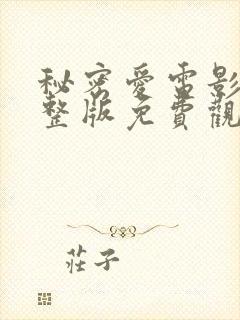 秘密愛電影
整版免費觀
莊子